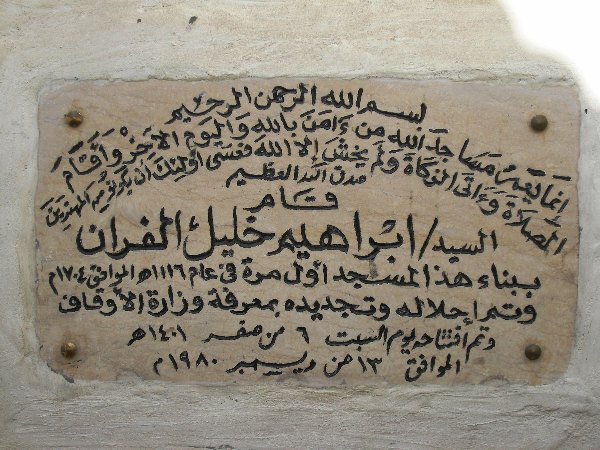 بسم الله الرحمن الرحيم
إنما يَعْمُرُ مَسَاجِدَ الله من ءَامَنَ بالله وَاليوم الآخِرْ وَأَقَامَ
الصلاةَ وَءَاتَى الزكاةَ وَلَمْ يخشَ إلا الله فعَسَى أولئِكَ أن يَكُونُوا مِنَ المهتدِينَ
صدق الله العظيم
قام
السيد/ ابراهيم خليل الفران
ببناء هذا المسجد أول مرة فى عام ١١١٦هـ الموافق ١٧٠٤م
وتم إحلاله وتجديده بمعرفة وزارة الأوقاف
وتم افتتاحه يوم السبت ٦ من صفر ١٤٠١هـ
الموافق ١٣ من ديسمبر ١٩٨٠م